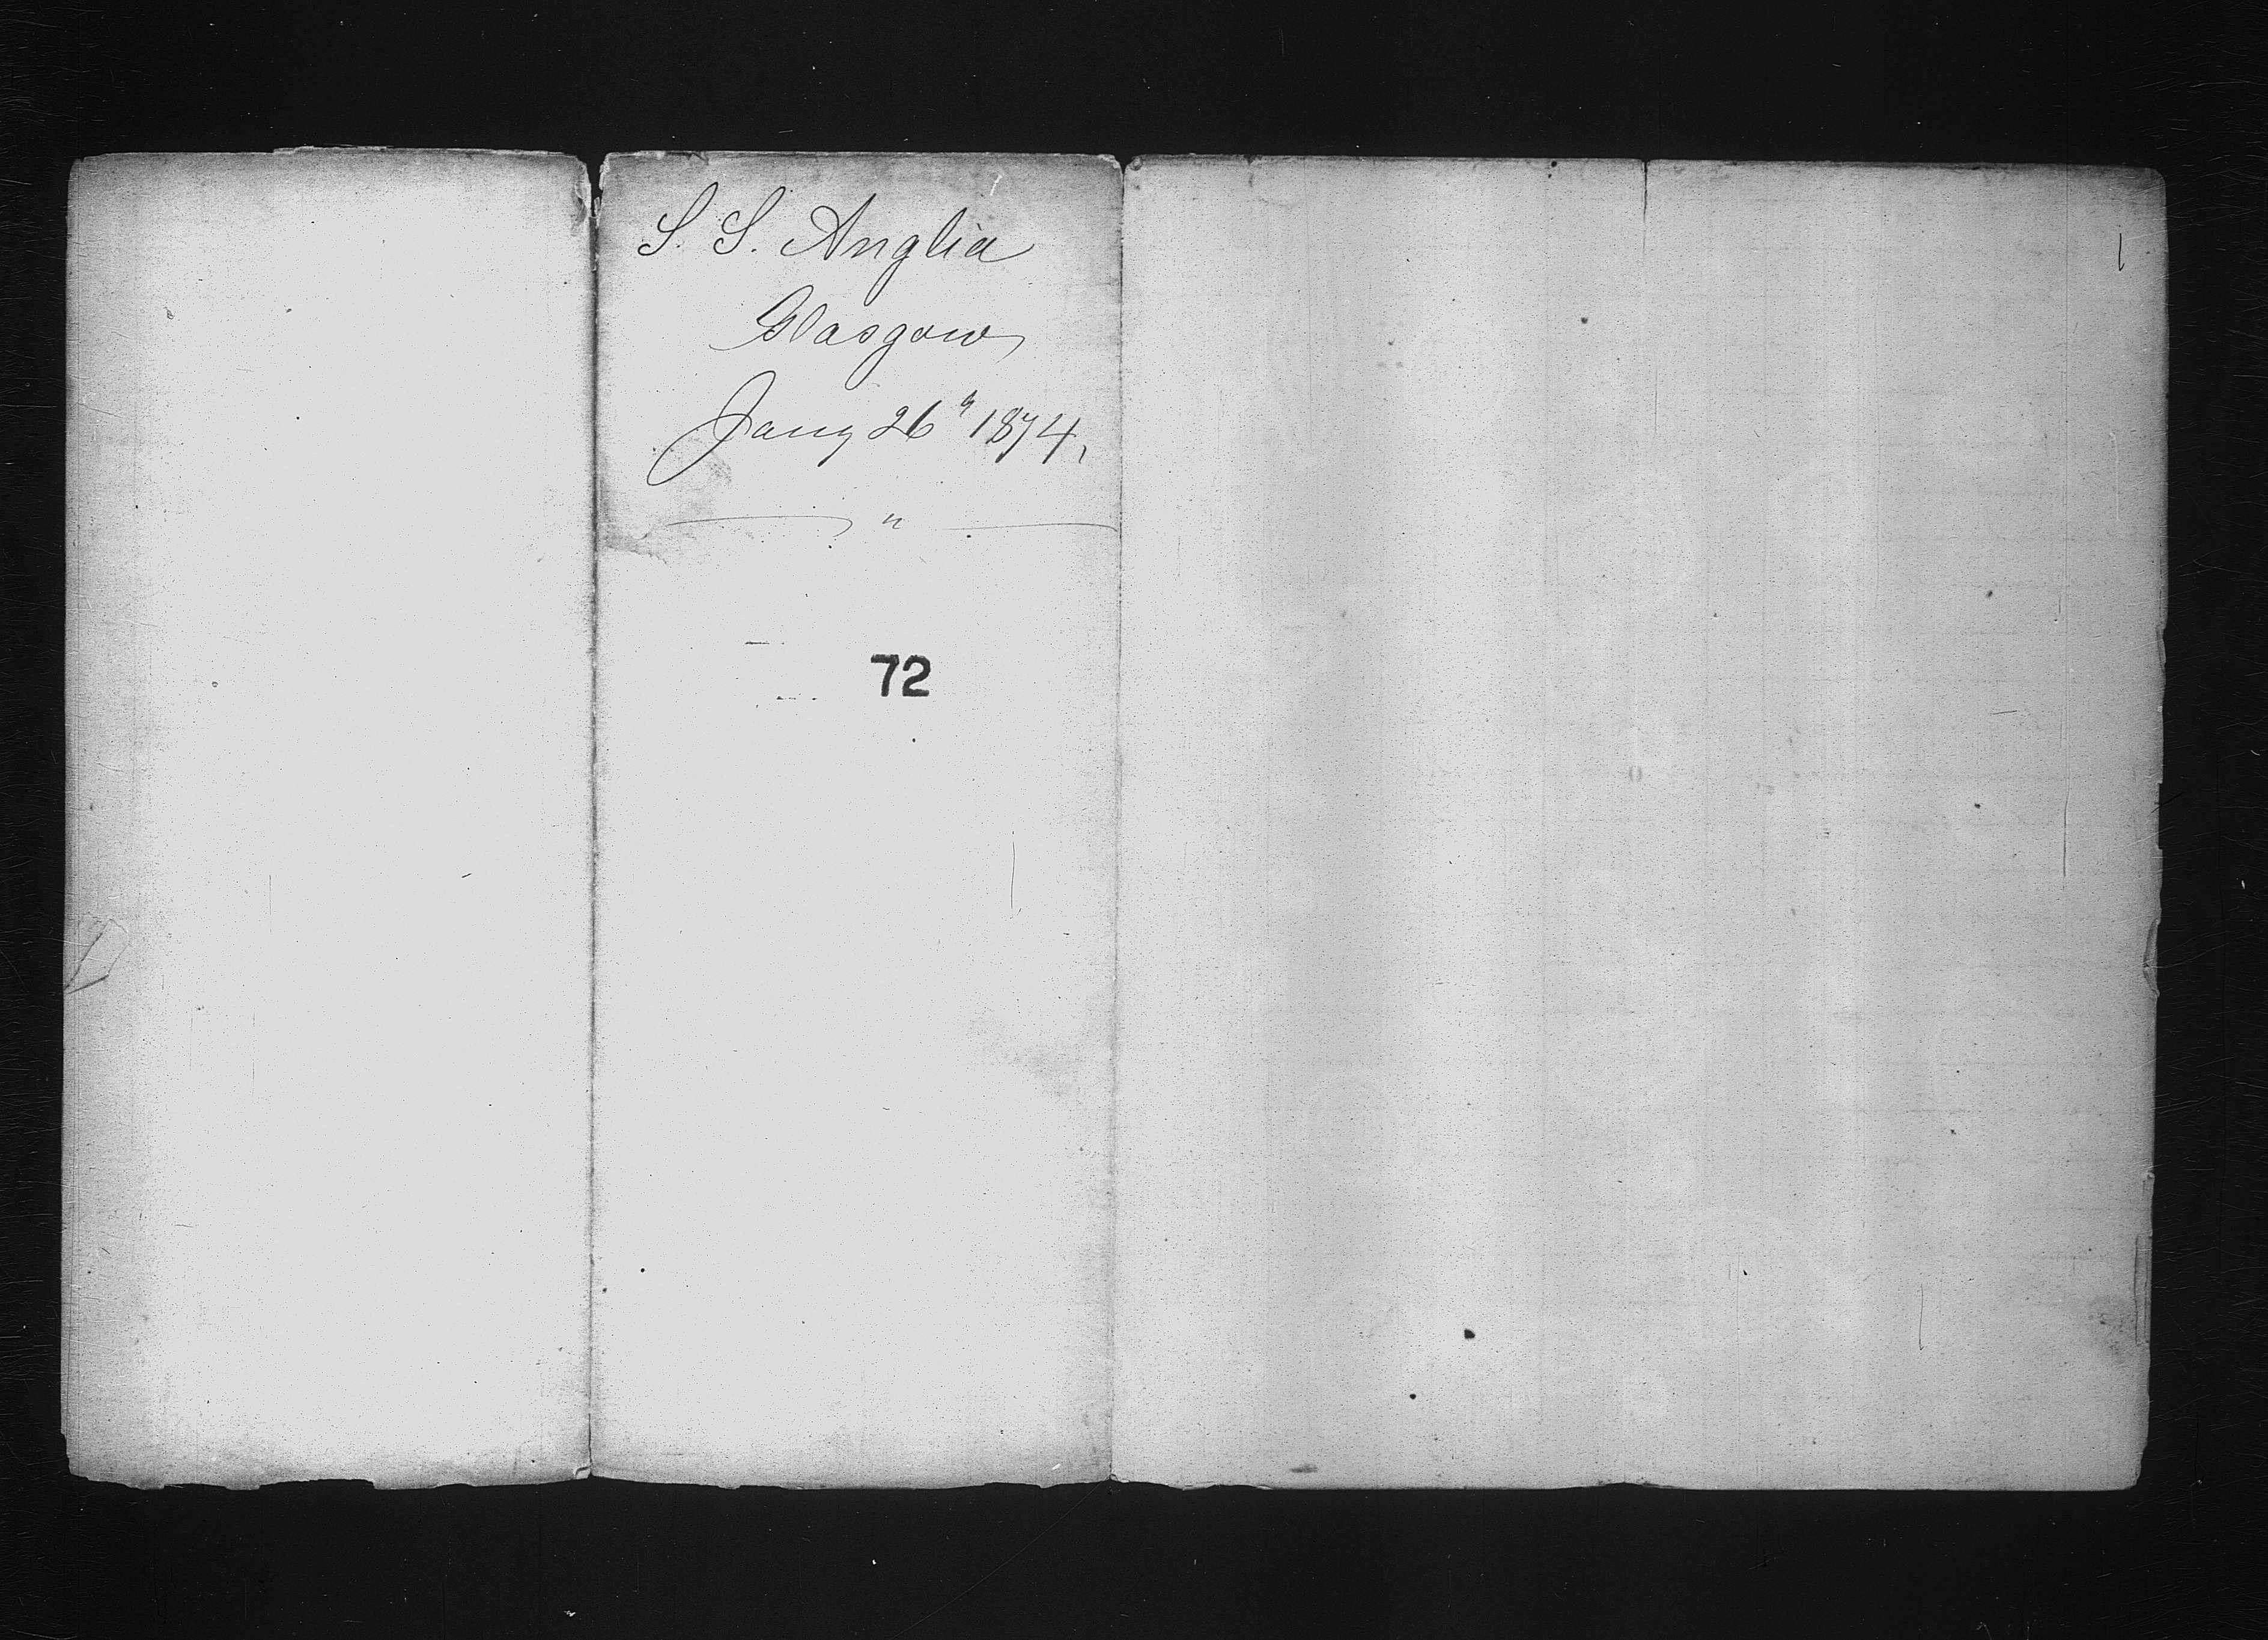 S. S. Anglia
Glasgow
Jany 26th 1874,
"
72